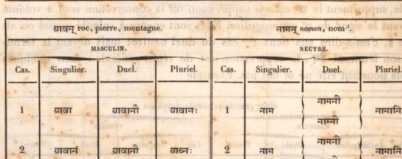 ग्रावन् roc, pierre, montagne. नामन् nomen, nom¹.
MASCULIN. NEUTRE.
Cas. Singulier. Duel. Pluriel. Cas. Singulier. Duel. Pluriel
नामनी
1 ग्रावा ग्रावानौ ग्रावानः 1 नाम नामानि
नाम्नी
नामनी
2 ग्रावानं ग्रावानौ ग्राव्नः 2 नाम नामानि